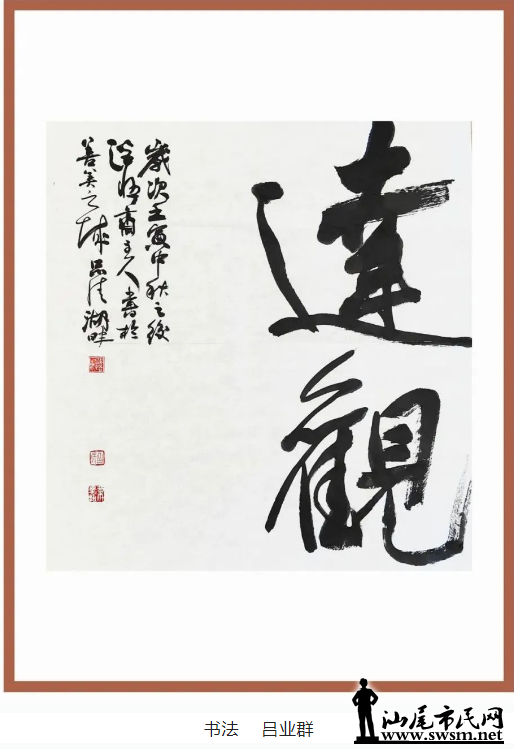 達觀
歲次壬寅中秋之後
齋主人書於
善美之城品清湖畔
书法 吕业群
汕尾市民网
www.swsm.net